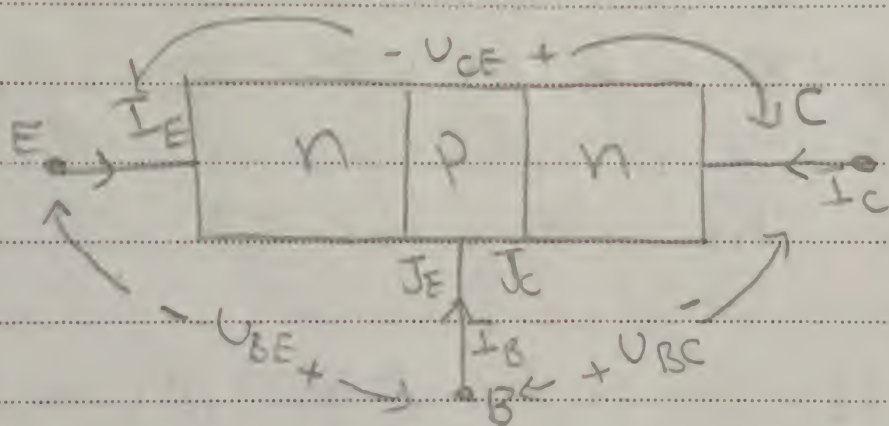 - U_CE +
E I_E n p n C I_C
J_E J_C
- U_BE + I_B + U_BC -
B